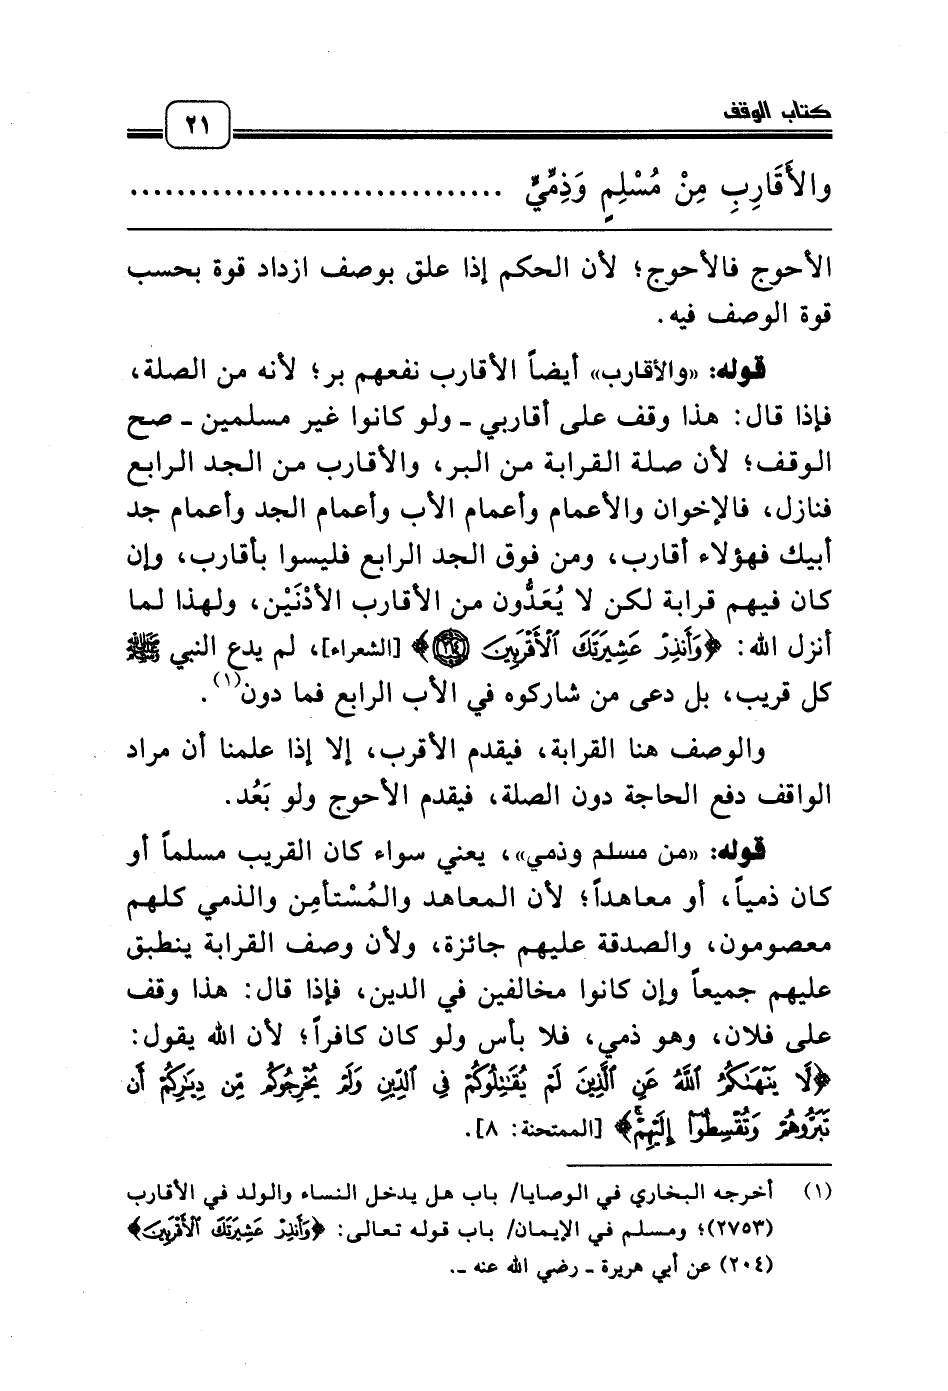 كتاب الوقف
٢١
والأَقَارِبِ مِنْ مُسْلِمٍ وَذِمِّيٍّ ................................
الأحوج فالأحوج؛ لأن الحكم إذا علق بوصف ازداد قوة بحسب
قوة الوصف فيه.
قوله: «والأقارب» أيضاً الأقارب نفعهم بر؛ لأنه من الصلة،
فإذا قال: هذا وقف على أقاربي ـ ولو كانوا غير مسلمين ـ صح
الوقف؛ لأن صلة القرابة من البر، والأقارب من الجد الرابع
فنازل، فالإخوان والأعمام وأعمام الأب وأعمام الجد وأعمام جد
أبيك فهؤلاء أقارب، ومن فوق الجد الرابع فليسوا بأقارب، وإن
كان فيهم قرابة لكن لا يُعَدُّون من الأقارب الأدْنَيْن، ولهذا لما
أنزل الله: ﴿وَأَنذِرْ عَشِيرَتَكَ ٱلْأَقْرَبِينَ ٢١٤﴾ [الشعراء]، لم يدع النبي ﷺ
كل قريب، بل دعى من شاركوه في الأب الرابع فما دون(١).
والوصف هنا القرابة، فيقدم الأقرب، إلا إذا علمنا أن مراد
الواقف دفع الحاجة دون الصلة، فيقدم الأحوج ولو بَعُد.
قوله: «من مسلم وذمي»، يعني سواء كان القريب مسلماً أو
كان ذمياً، أو معاهداً؛ لأن المعاهد والمُسْتأمِن والذمي كلهم
معصومون، والصدقة عليهم جائزة، ولأن وصف القرابة ينطبق
عليهم جميعاً وإن كانوا مخالفين في الدين، فإذا قال: هذا وقف
على فلان، وهو ذمي، فلا بأس ولو كان كافراً؛ لأن الله يقول:
﴿لَّا يَنْهَىٰكُمُ ٱللَّهُ عَنِ ٱلَّذِينَ لَمْ يُقَٰتِلُوكُمْ فِي ٱلدِّينِ وَلَمْ يُخْرِجُوكُم مِّن دِيَٰرِكُمْ أَن
تَبَرُّوهُمْ وَتُقْسِطُوٓا۟ إِلَيْهِمْ ۚ﴾ [الممتحنة: ٨].
(١) أخرجه البخاري في الوصايا/ باب هل يدخل النساء والولد في الأقارب
(٢٧٥٣)؛ ومسلم في الإيمان/ باب قوله تعالى: ﴿وَأَنذِرْ عَشِيرَتَكَ ٱلْأَقْرَبِينَ﴾
(٢٠٤) عن أبي هريرة ـ رضي الله عنه ـ.